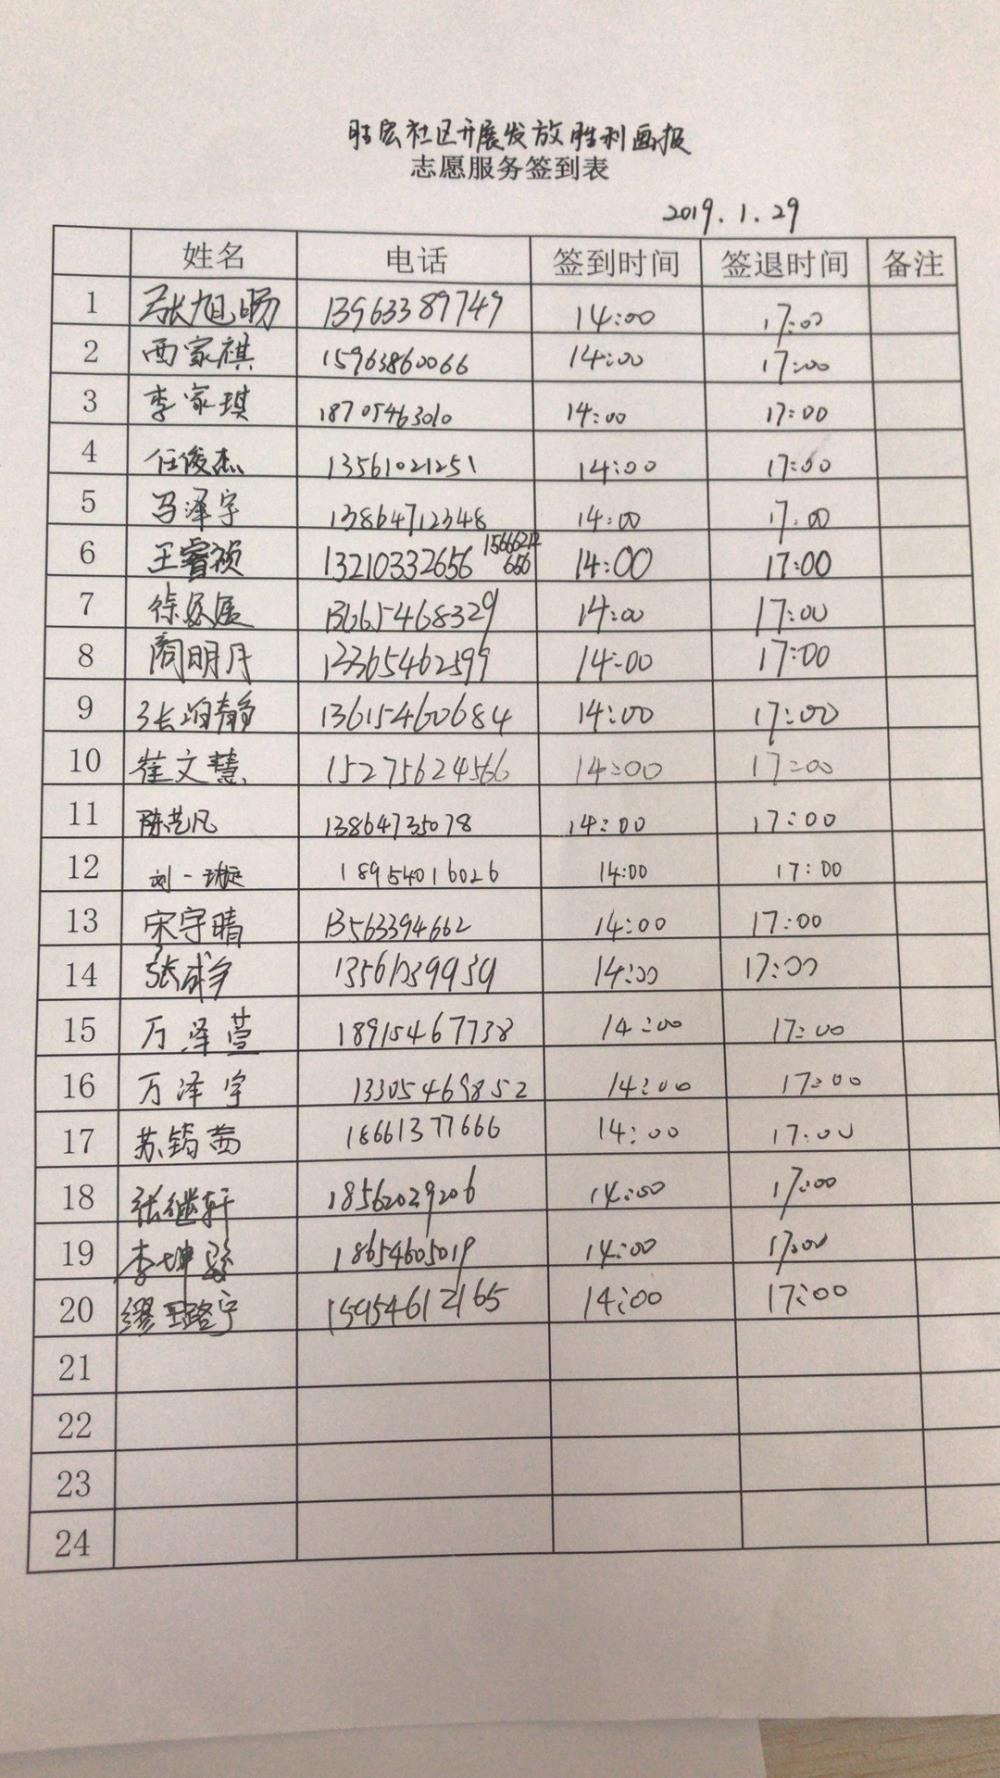 旺宏社区开展发放胜利画报
志愿服务签到表
2019.1.29
姓名 电话 签到时间 签退时间 备注
1 张旭旸 13963389749 14:00 17:00
2 西家祺 15963860066 14:00 17:00
3 李家琪 18705463010 14:00 17:00
4 任俊杰 13561021251 14:00 17:00
5 马泽宇 13864712348 14:00 17:00
6 王睿祯 13210332656 1566214656 14:00 17:00
7 13665468329 14:00 17:00
8 周明月 13365462599 14:00 17:00
9 13615460684 14:00 17:00
10 崔文慧 15275624566 14:00 17:00
11 陈艺凡 13864735078 14:00 17:00
12 刘一璇 18954016026 14:00 17:00
13 宋宇晴 13563394662 14:00 17:00
14 14:00 17:00
15 万泽萱 18915467738 14:00 17:00
16 万泽宇 13305469852 14:00 17:00
17 苏筠茜 18661377666 14:00 17:00
18 张继轩 18562029206 14:00 17:00
19 18654605019 14:00 17:00
20 15954612165 14:00 17:00
21
22
23
24